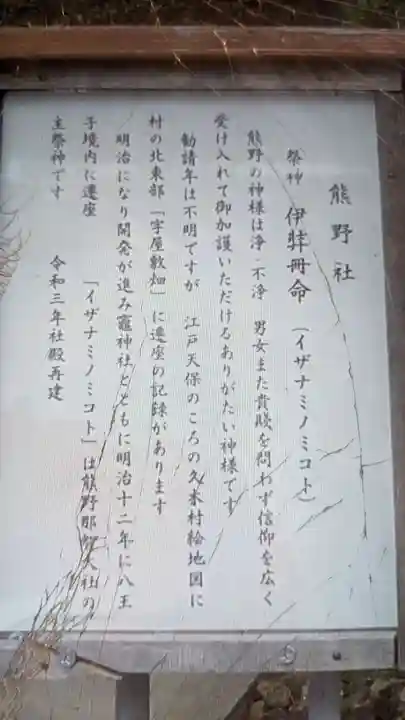 熊野社
祭神 伊弉冊命 (イザナミノミコト)
熊野の神様は浄・不浄 男女また貴賤を問わず信仰を広く
受け入れて御加護いただけるありがたい神様です
勧請年は不明ですが 江戸天保のころの久末村絵地図に
村の北東部「字屋敷畑」に遷座の記録があります
明治になり開発が進み竈神社とともに明治十二年に八王
子境内に遷座 「イザナミノミコト」は熊野那智大社の
主祭神です 令和三年社殿再建